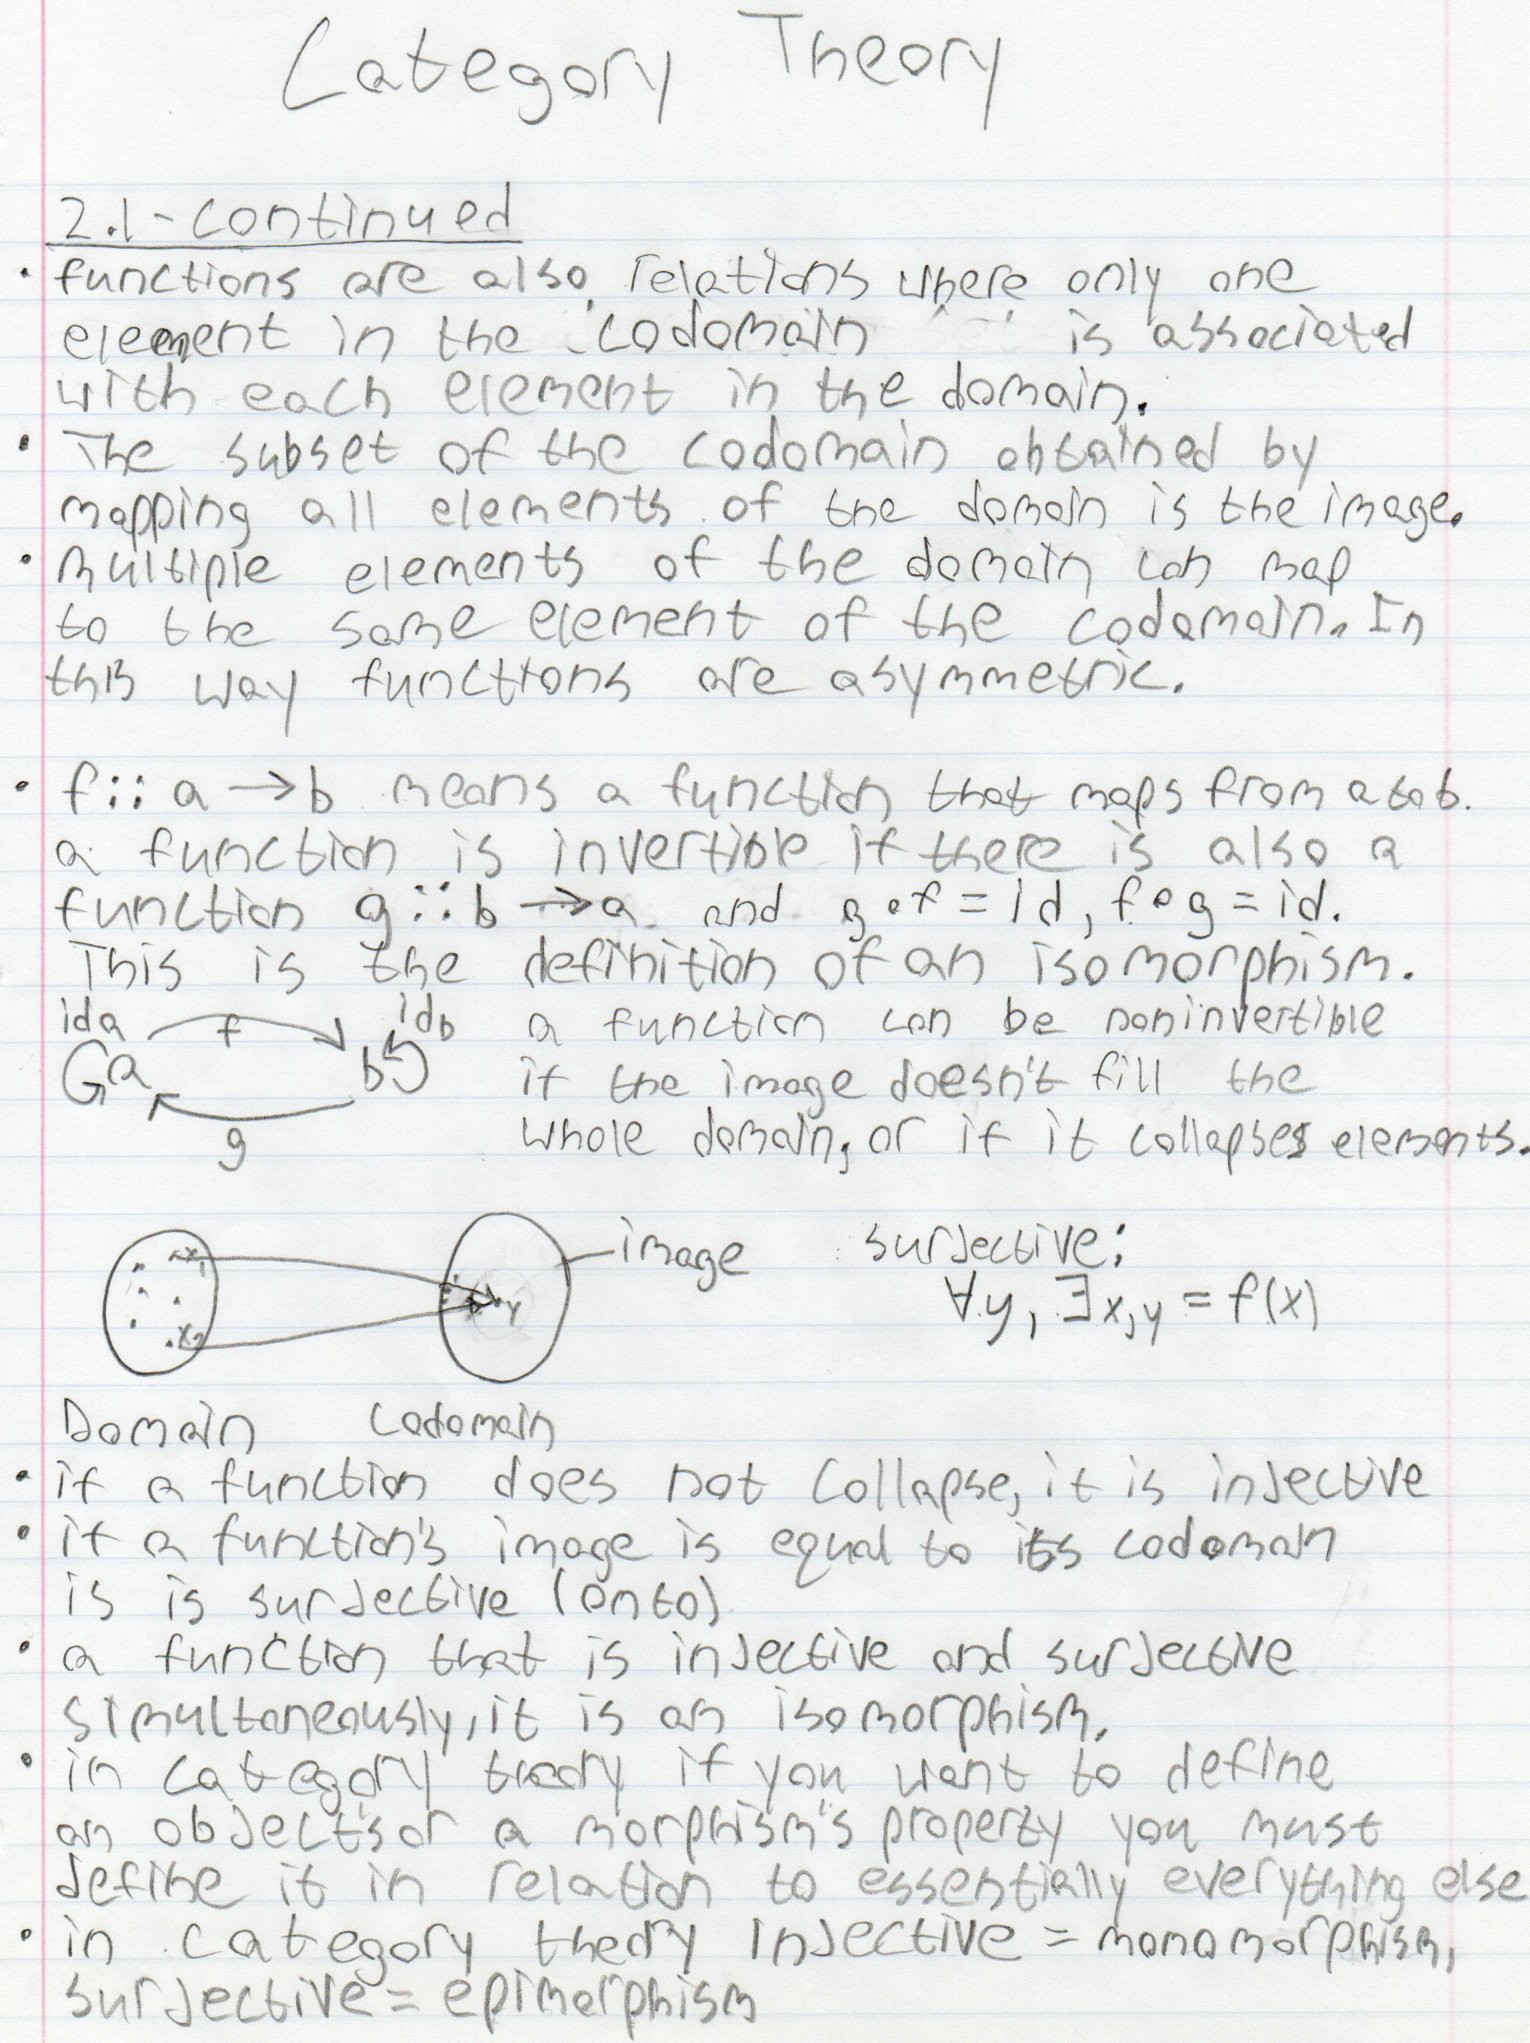 Category Theory
2.1-continued
• functions are also relations where only one
element in the codomain is associated
with each element in the domain.
• The subset of the codomain obtained by
mapping all elements of the domain is the image.
• multiple elements of the domain can map
to the same element of the codomain. In
this way functions are asymmetric.
• f:: a → b means a function that maps from a to b.
a function is invertible if there is also a
function g:: b → a and g∘f = id, f∘g = id.
This is the definition of an isomorphism.
ida f idb a function can be noninvertible
a b if the image doesn't fill the
g whole domain, or if it collapses elements.
x1 y image surjective:
x2 ∀y, ∃x, y = f(x)
Domain Codomain
• if a function does not collapse, it is injective
• if a function's image is equal to its codomain
is is surjective (onto)
• a function that is injective and surjective
simultaneously, it is an isomorphism.
• in category theory if you want to define
an object's or a morphism's property you must
define it in relation to essentially everything else
• in category theory injective = monomorphism,
surjective = epimorphism